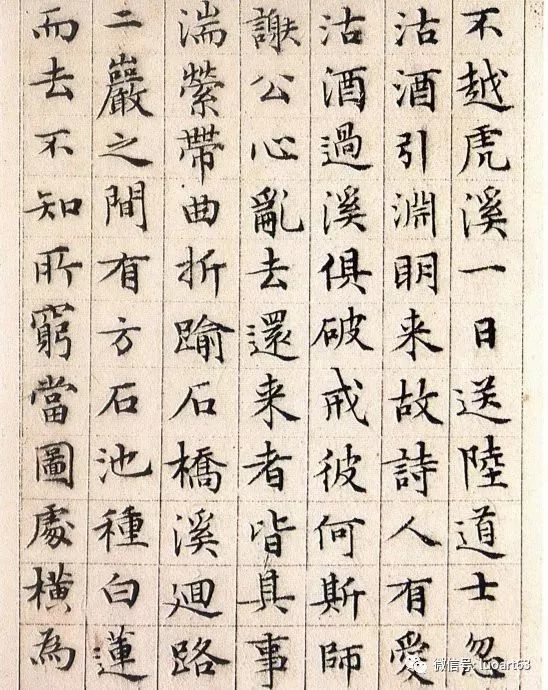 不越虎溪一日送陸道士忽
沽酒引淵明来故詩人有愛
沽酒過溪俱破戒彼何斯師
謝公心亂去還来者皆具事
湍縈帶曲折踰石橋溪迴路
二巖之間有方石池種白蓮
而去不知所窮當圖處橫為
微信号: luoart63